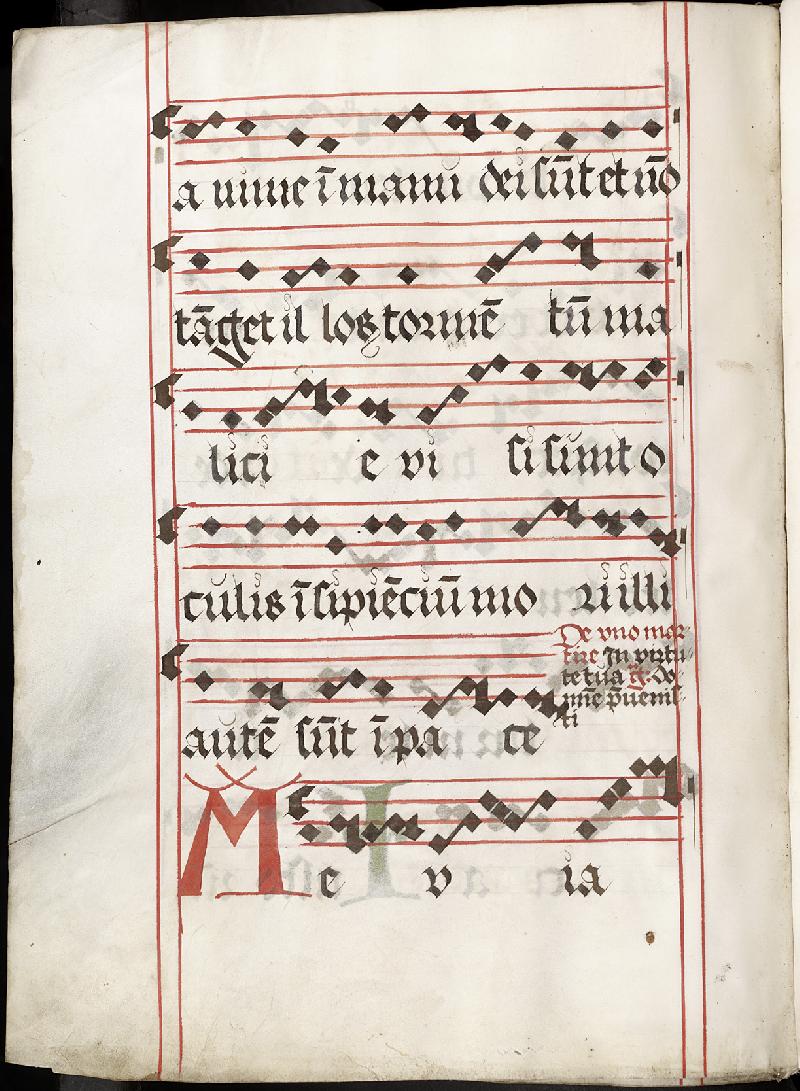 a nime ī manu dei sūt et nō
tāget il loꝝ tormē tū ma
lici e vi si sunt o
culis īsipiēciū mo ri illi
autē sūt ī pa ce
De vno mar
tire In virtu
te tua
mīe p̄uenis
ti
M e v ia